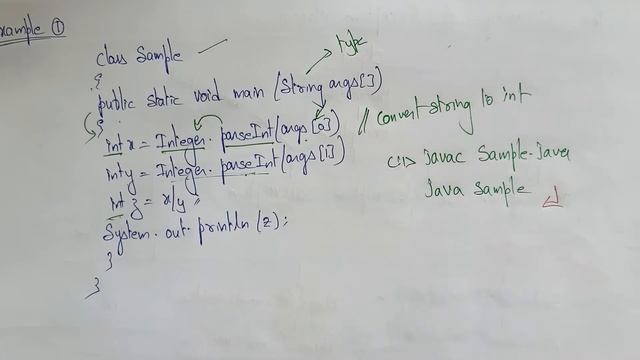 xample ①
class Sample
{
type
public static void main (String args[])
{
int x = Integer. parseInt(args[0])
// convert string to int
int y = Integer. parseInt(args[1])
c:\> Javac Sample.Java
int z = x/y;
Java Sample ↲
System.out.println(z);
}
}